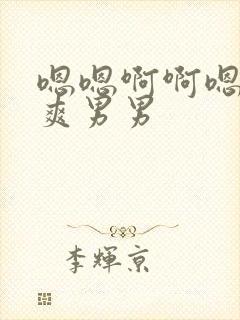 嗯嗯啊啊嗯
爽男男
李輝京